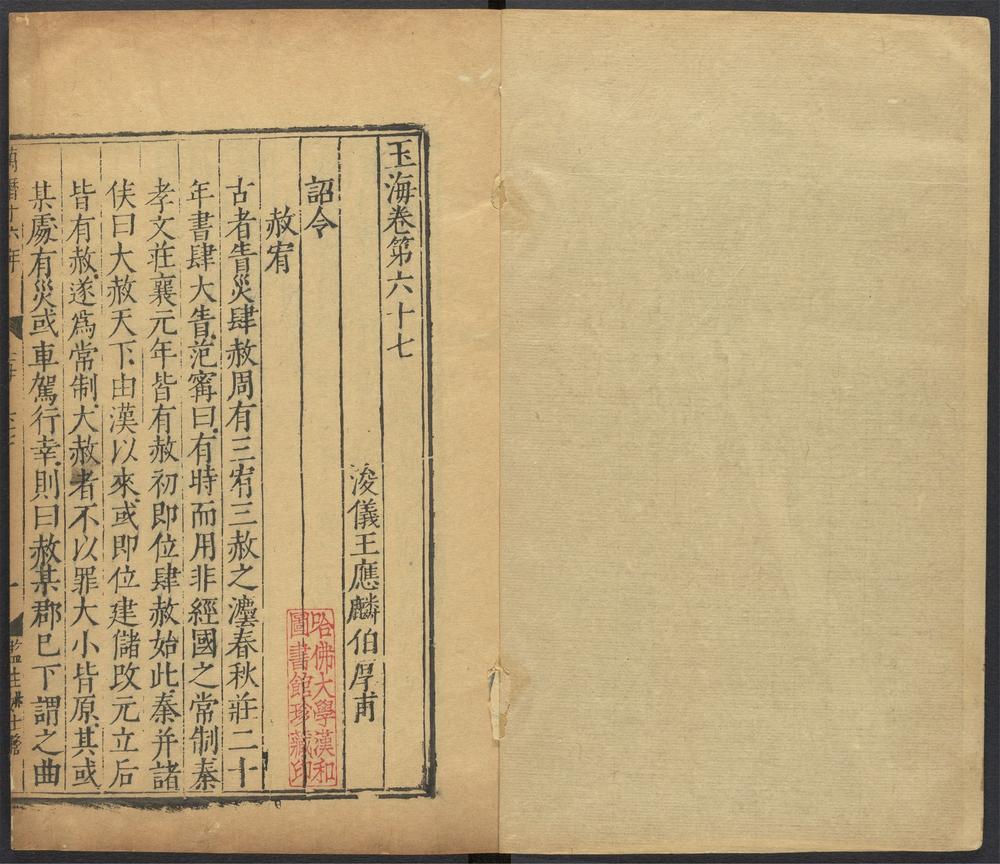 玉海卷第六十七
浚儀王應麟伯厚甫
詔令
赦宥
古者眚災肆赦周有三宥三赦之灋春秋莊二十
年書肆大眚范甯曰有時而用非經國之常制秦
孝文莊襄元年皆有赦初即位肆赦始此秦并諸
侯曰大赦天下由漢以來或即位建儲改元立后
皆有赦遂爲常制大赦者不以罪大小皆原其或
某處有災或車駕行幸則曰赦某郡已下謂之曲
萬曆十六年
哈佛大學漢和
圖書館珍藏印